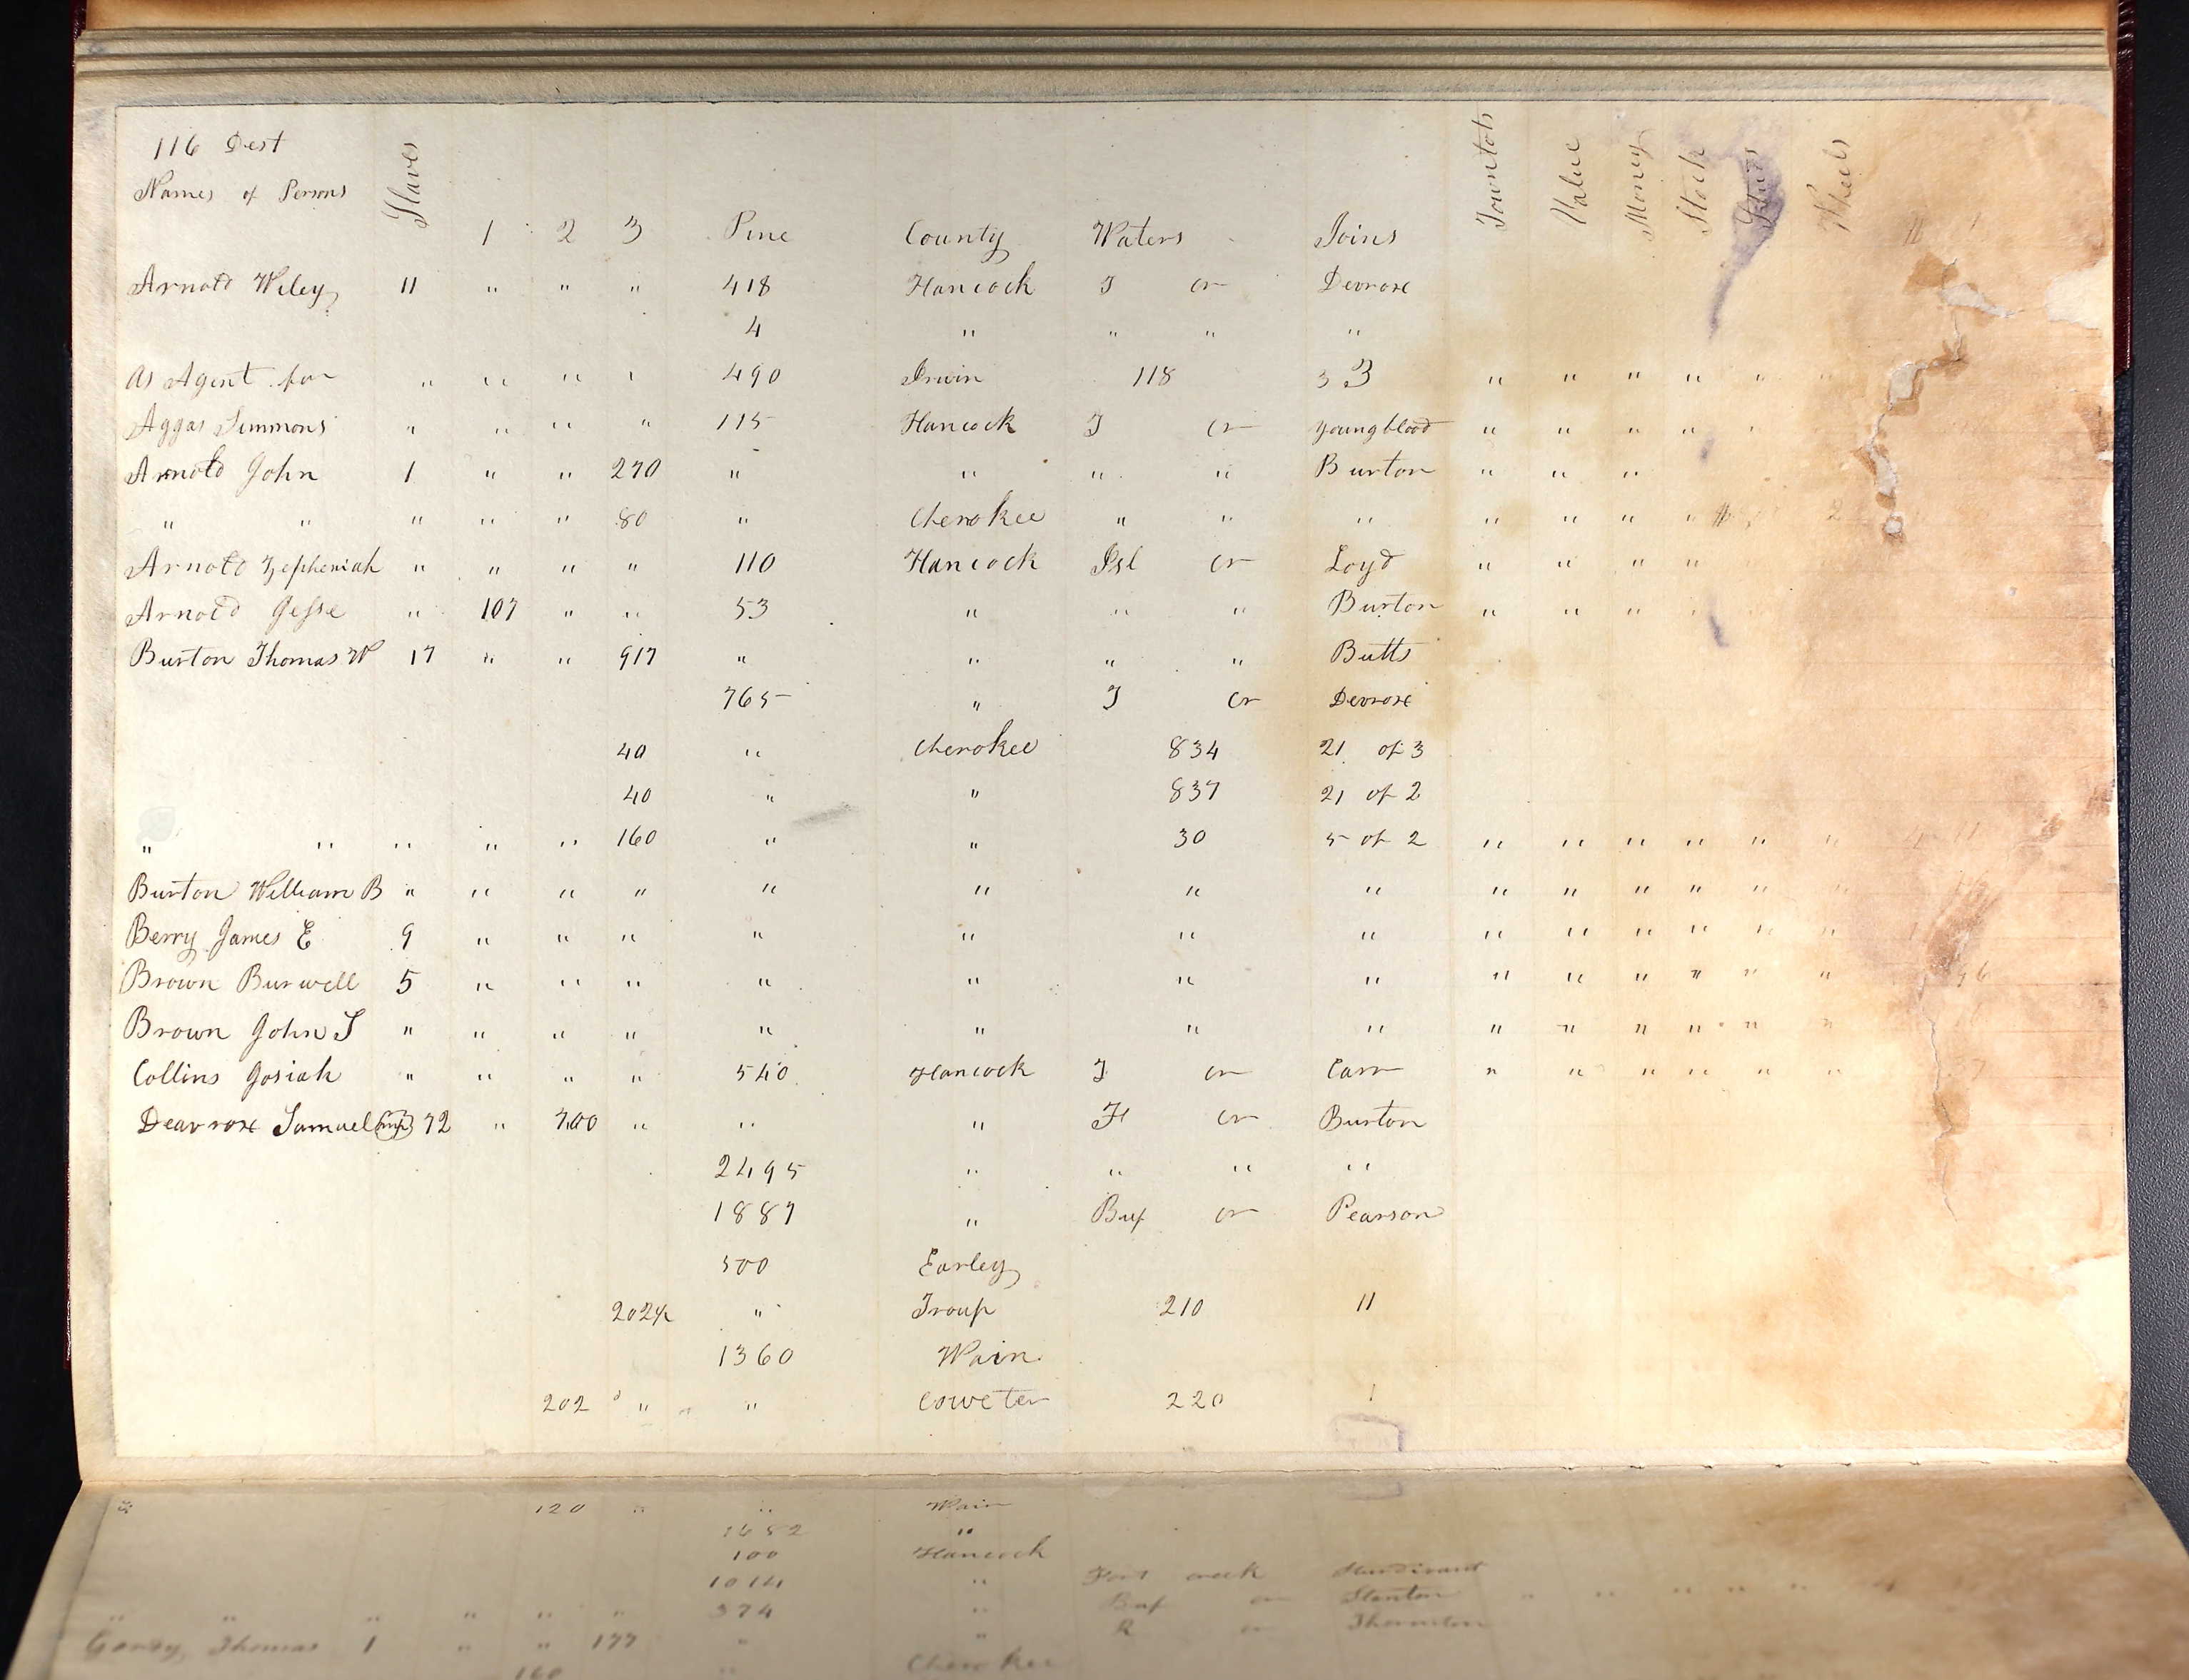 116 Dest
Names of Persons Slaves 1 2 3 Pine County Waters Joins Townlots Value Money Stock Wheels
Arnold Wiley 11 " " " 418 Hancock T cr Devrose
4 " " " "
As Agent for " " " " 490 Irwin 118 3 3 " " " " " "
Aggas Simmons " " " " 115 Hancock T cr Youngblood " " " " "
Arnold John 1 " " 270 " " " " Burton " " "
" " " " " 80 " Cherokee " " " " " " " 2
Arnold Zepheniah " " " " 110 Hancock Isl cr Loyd " " " "
Arnold Jesse " 107 " " 53 " " " Burton " " " "
Burton Thomas W 17 " " 917 " " " " Butts
765 " T cr Devrose
40 " Cherokee 834 21 of 3
40 " " 837 21 of 2
" " " " " 160 " " 30 5 of 2 " " " " " "
Burton William B " " " " " " " " " " " " " "
Berry James E 9 " " " " " " " " " " " " "
Brown Burwell 5 " " " " " " " " " " " " "
Brown John S " " " " " " " " " " " " " "
Collins Josiah " " " " 540 Hancock T cr Carr " " " " " "
Dearrose Samuel 72 " 700 " " " Ft cr Burton
2495 " " " "
1887 " Buf cr Pearson
500 Earley
202½ " Troup 210 11
1360 Wain
202 " " Coweter 220 1
120 " " Wain
1452 "
100 Hancock
1014 " Fort creek Sturdivant
" " " " " " 374 " Buf cr Stanton " " " " "
Thomas 1 " " 177 " " R cr Thornton
160 " Cherokee